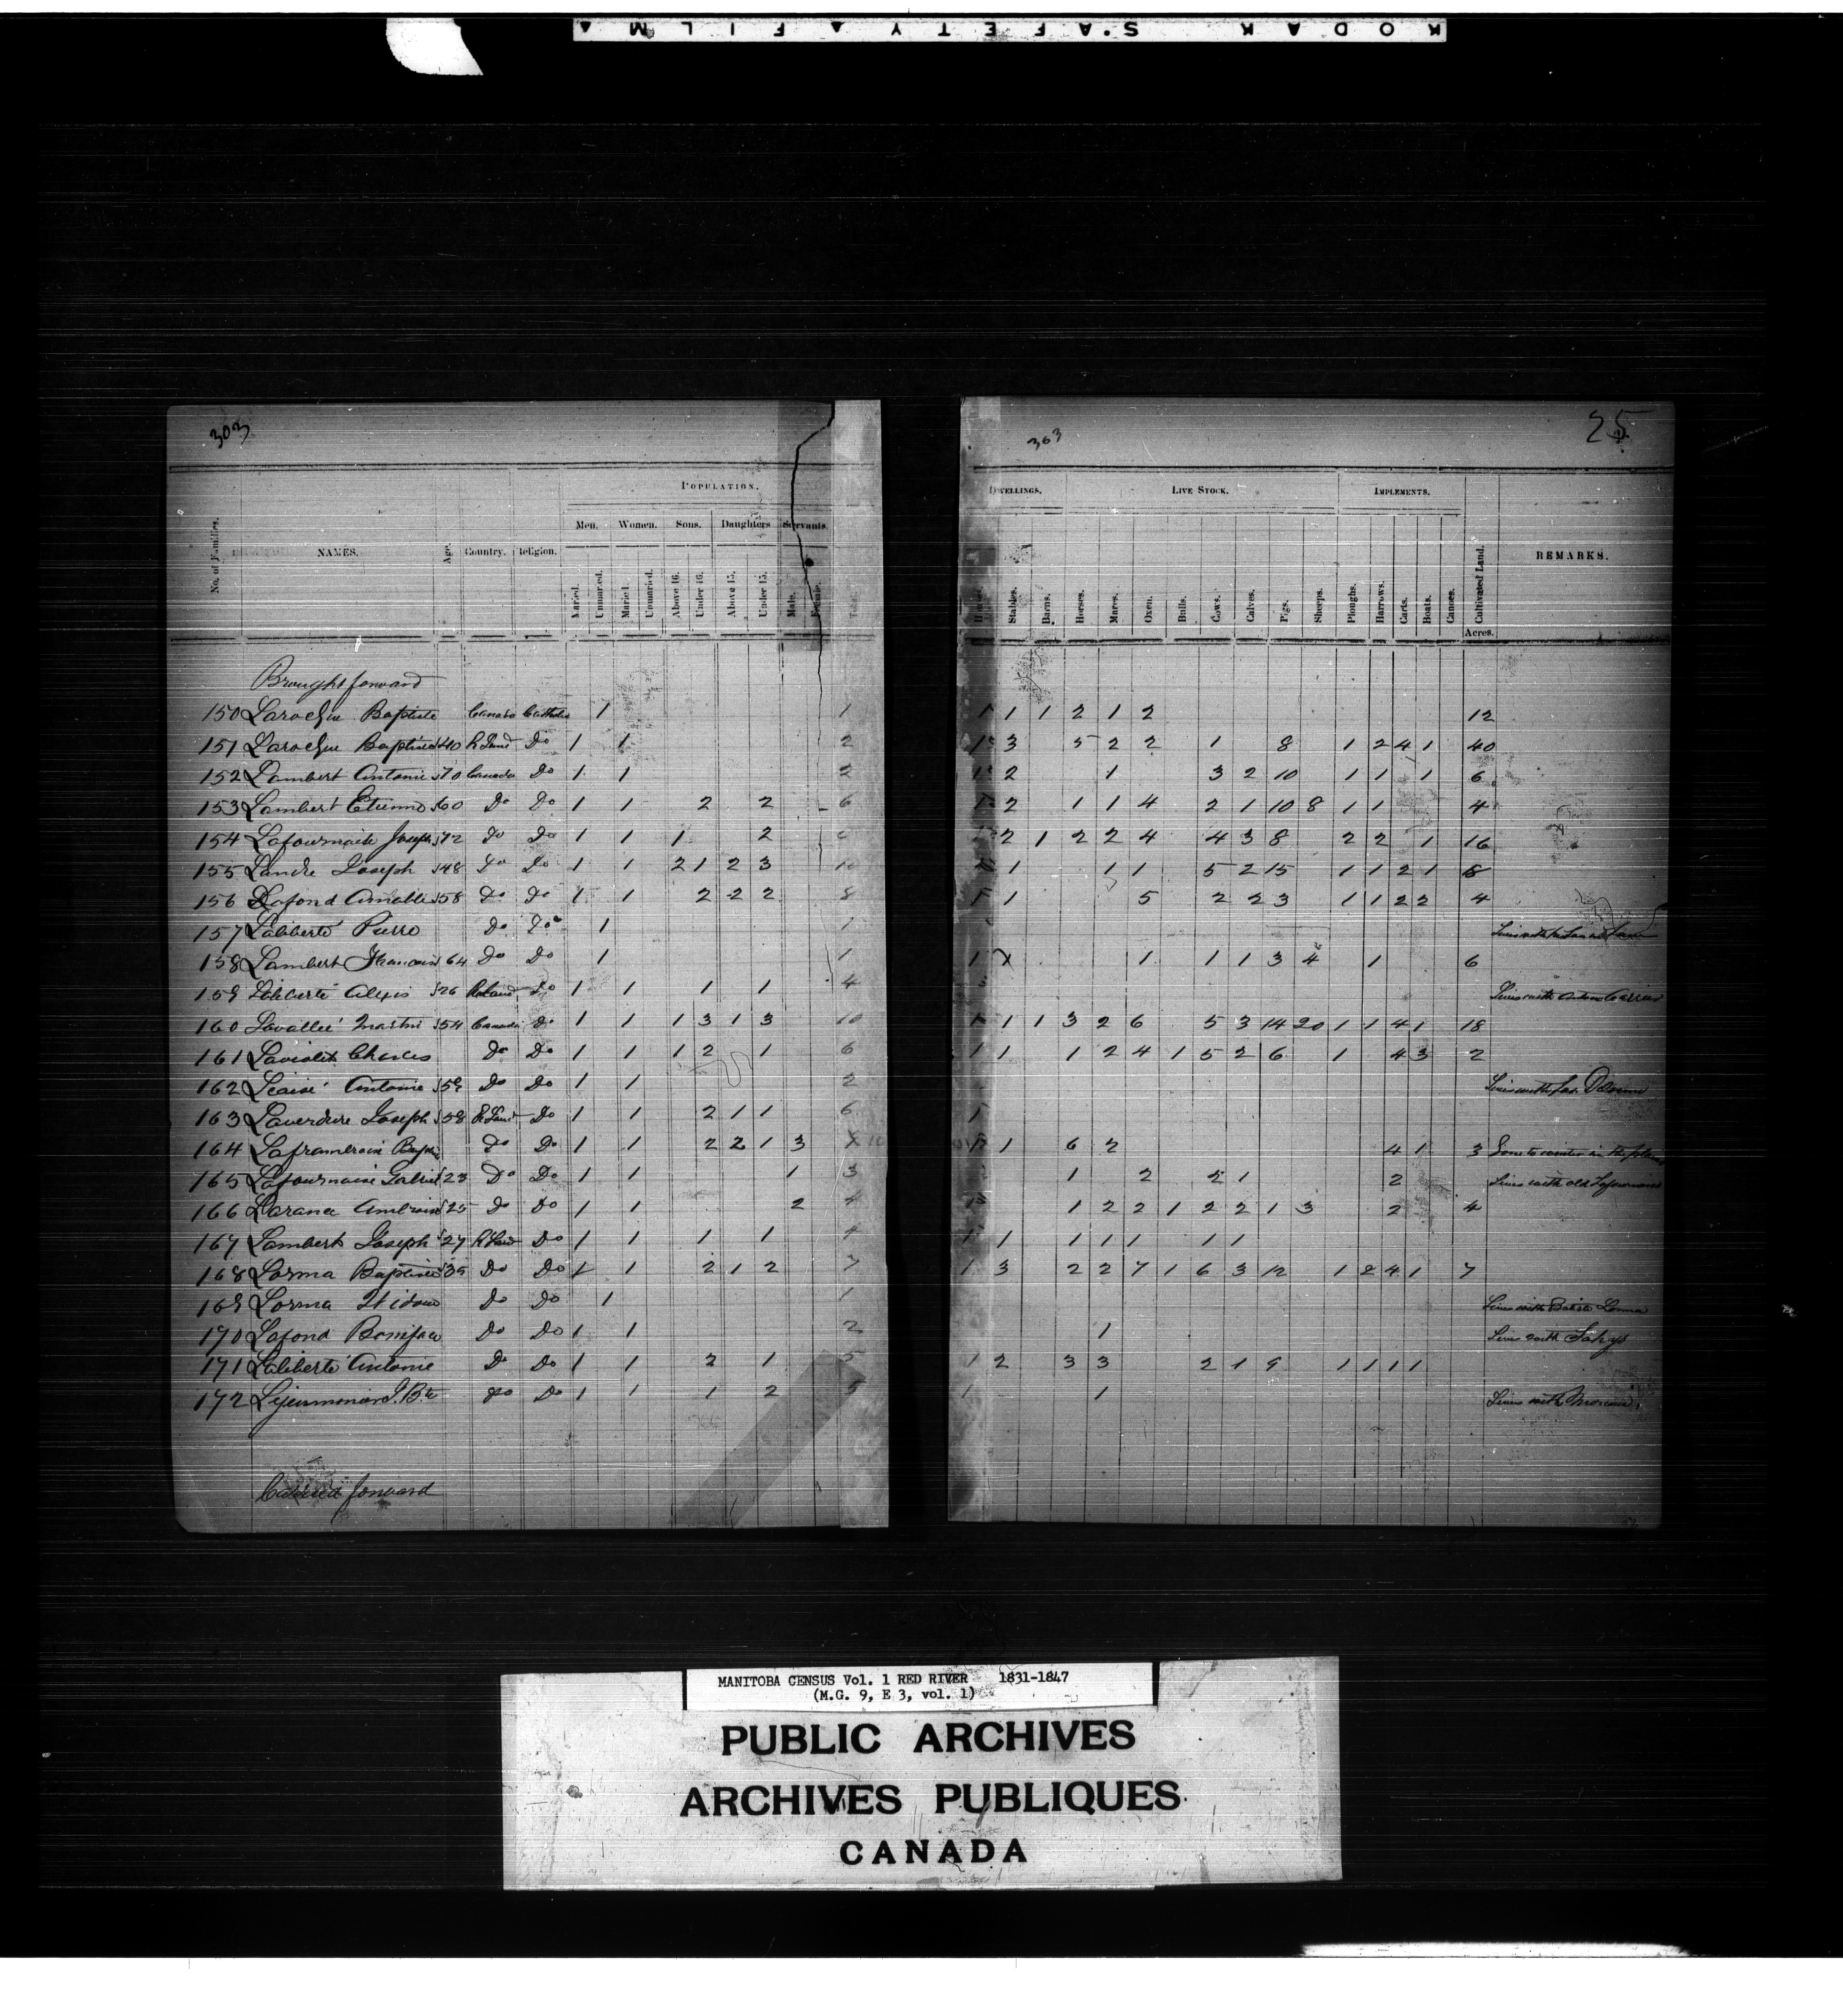 KODAK SAFETY FILM
303
POPULATION.
Men. Women. Sons. Daughters Servants
No. of Families. NAMES. Age. Country. Religion. Maried. Unmaried. Maried. Unmaried. Above 16. Under 16. Above 15. Under 15. Male. Female. Total.
Brought forward
150 Larocque Baptiste Canada Catholic 1 1
151 Larocque Baptiste 40 R Land Do 1 1 2
152 Lambert Antoine 70 Canada Do 1 1 2
153 Lambert Etienne 60 Do Do 1 1 2 2 6
154 Lafournaise Joseph 72 Do Do 1 1 1 2
155 Landre Joseph 48 Do Do 1 1 2 1 2 3 10
156 Lafond Amable 58 Do Do 1 1 2 2 2 8
157 Laliberté Pierre Do Do 1 1
158 Lambert Francois 64 Do Do 1 1
159 Laliberté Alexis 26 R Land Do 1 1 1 1 4
160 Lavallée Martin 54 Canada Do 1 1 1 3 1 3 10
161 Laviolett Charles Do Do 1 1 1 2 1 6
162 Antoine 59 Do Do 1 1 2
163 Laverdure Joseph 58 R Land Do 1 1 2 1 1 6
164 Laframboise Do Do 1 1 2 2 1 3 10
165 Lafournaise Gabriel 23 Do Do 1 1 1 3
166 Ambroise 25 Do Do 1 1 2 4
167 Lambert Joseph 27 R Land Do 1 1 1 1 4
168 Lorma Baptiste 35 Do Do 1 1 2 1 2 7
169 Lorma Do Do 1 1
170 Lafond Boniface Do Do 1 1 2
171 Laliberté Antoine Do Do 1 1 2 1 5
172 J. Bte Do Do 1 1 1 2 5
Carried forward
363
25
DWELLINGS. LIVE STOCK. IMPLEMENTS.
Houses. Stables. Barns. Horses. Mares. Oxen. Bulls. Cows. Calves. Pigs. Sheeps. Ploughs. Harrows. Carts. Boats. Canoes. Cultivated Land. REMARKS.
Acres.
1 1 1 2 1 2 12
1 3 5 2 2 1 8 1 2 4 1 40
1 2 1 3 2 10 1 1 1 6
1 2 1 1 4 2 1 10 8 1 1 4
2 1 2 2 4 4 3 8 2 2 1 16
1 1 1 5 2 15 1 1 2 1 8
1 1 5 2 2 3 1 1 2 2 4
1 1 1 1 3 4 1 6
Lives with
1 1 1 3 2 6 5 3 14 20 1 1 4 1 18
1 1 1 2 4 1 5 2 6 1 4 3 2
Lives with
1
1 6 2 4 1 3 Gone to winter in the plains
1 2 5 1 2 Lives with old Lafournaise
1 2 2 1 2 2 1 3 2 4
1 1 1 1 1 1 1
1 3 2 2 7 1 6 3 12 1 2 4 1 7
Lives with Batiste Lorma
1 Lives with
1 2 3 3 2 1 9 1 1 1 1
1 1 Lives with
MANITOBA CENSUS Vol. 1 RED RIVER 1831-1847
(M.G. 9, E 3, vol. 1)
PUBLIC ARCHIVES
ARCHIVES PUBLIQUES
CANADA